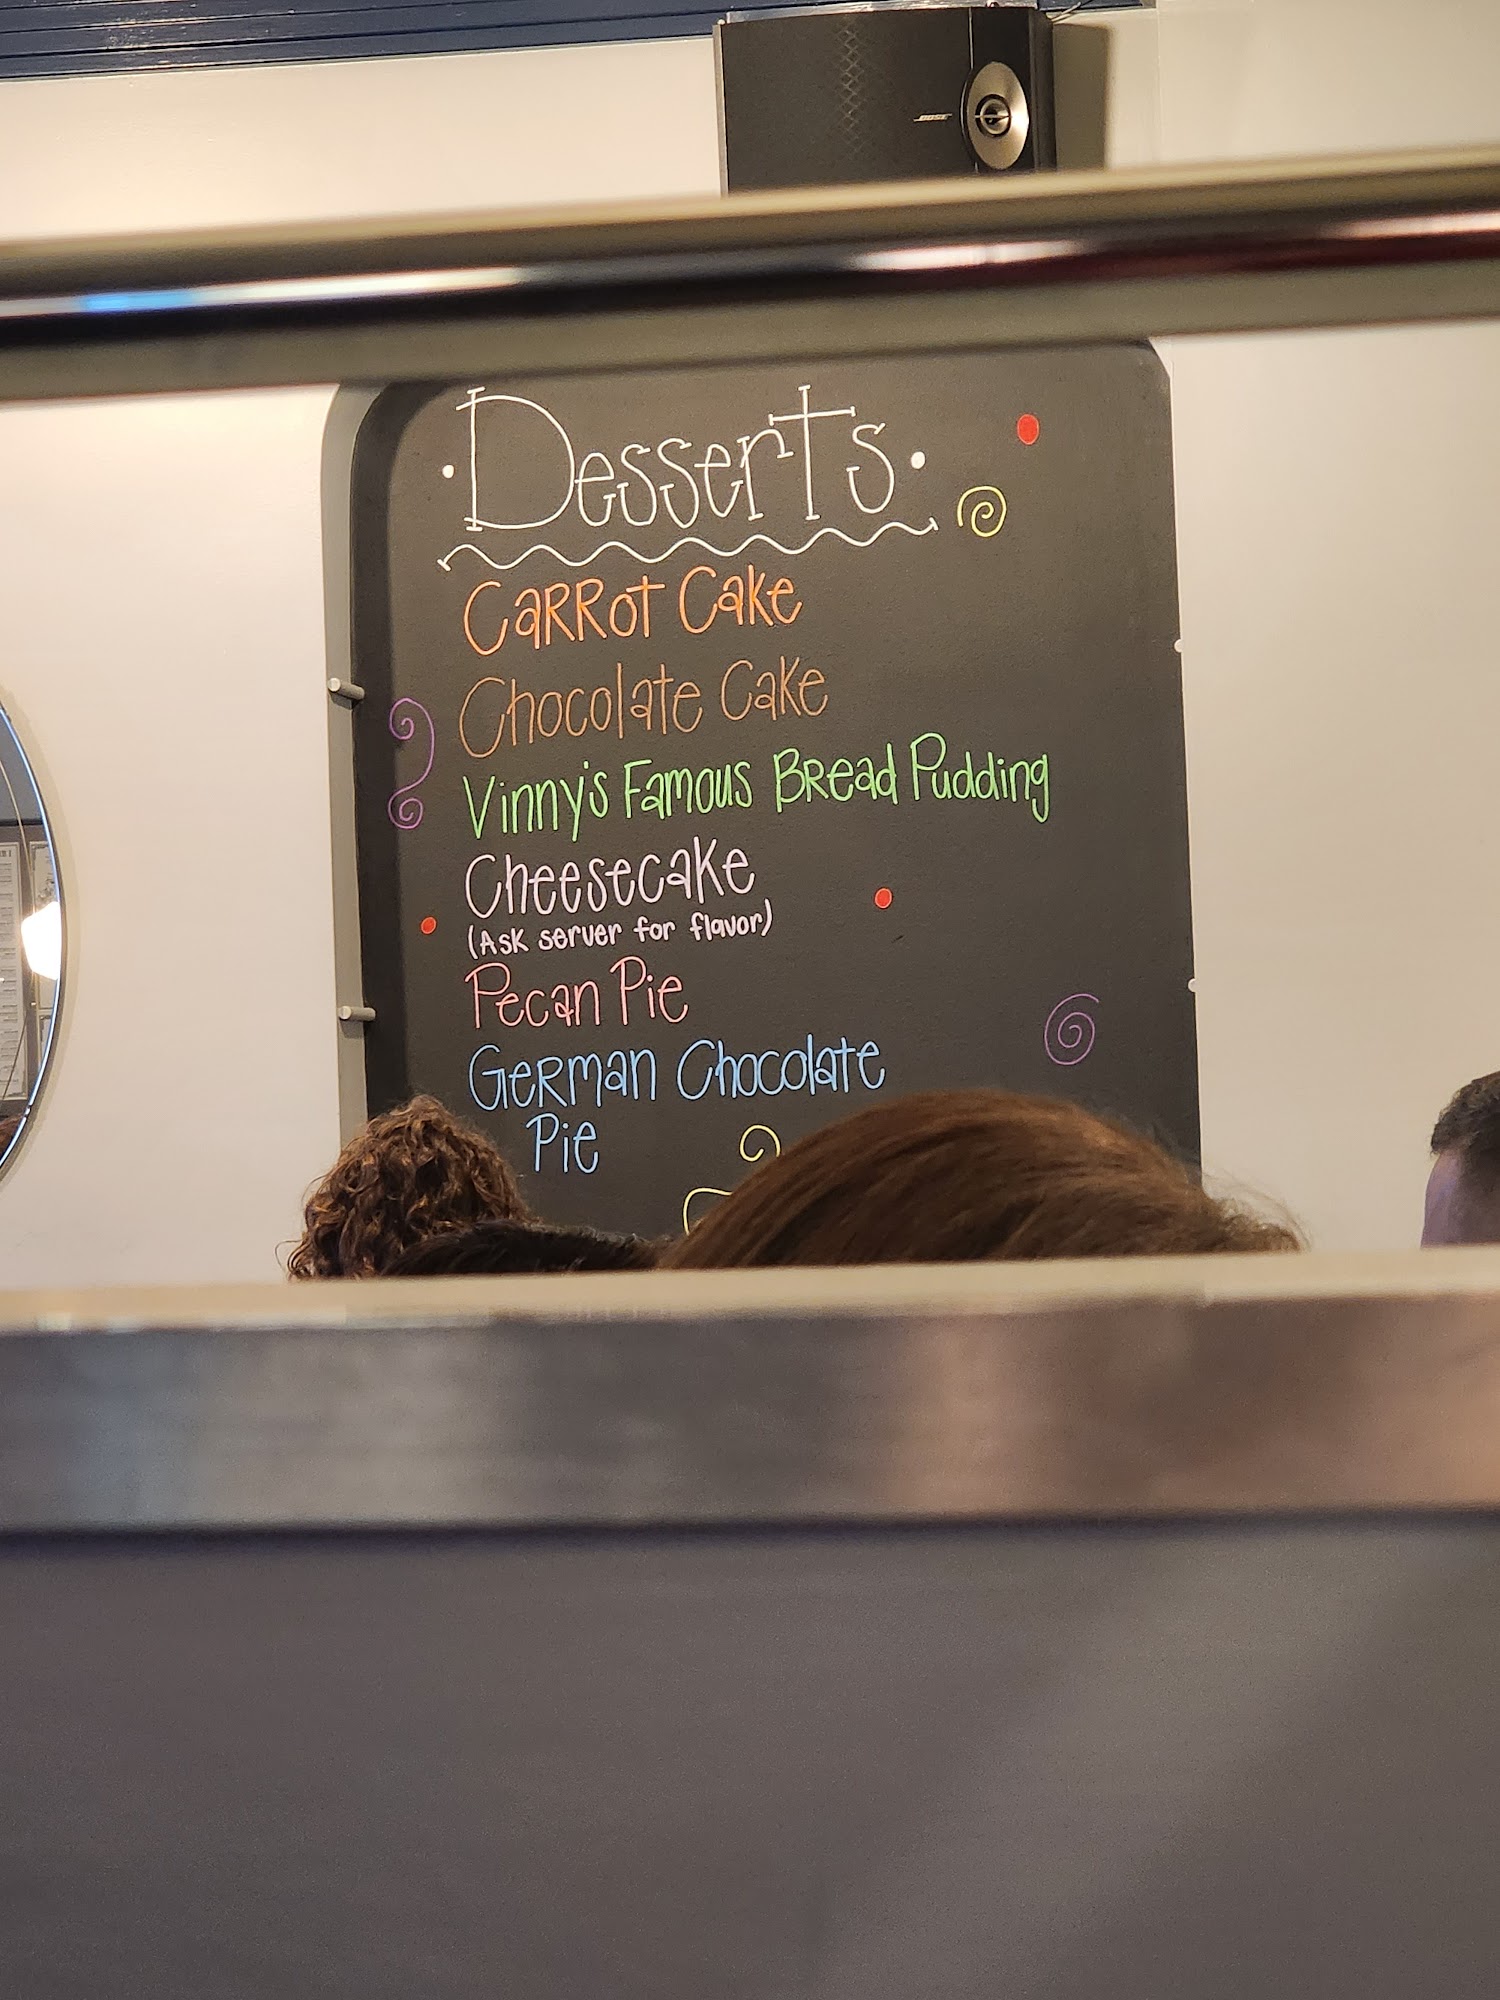 BOSE
Desserts
Carrot Cake
Chocolate Cake
Vinny's Famous Bread Pudding
Cheesecake
(Ask server for flavor)
Pecan Pie
German Chocolate
Pie